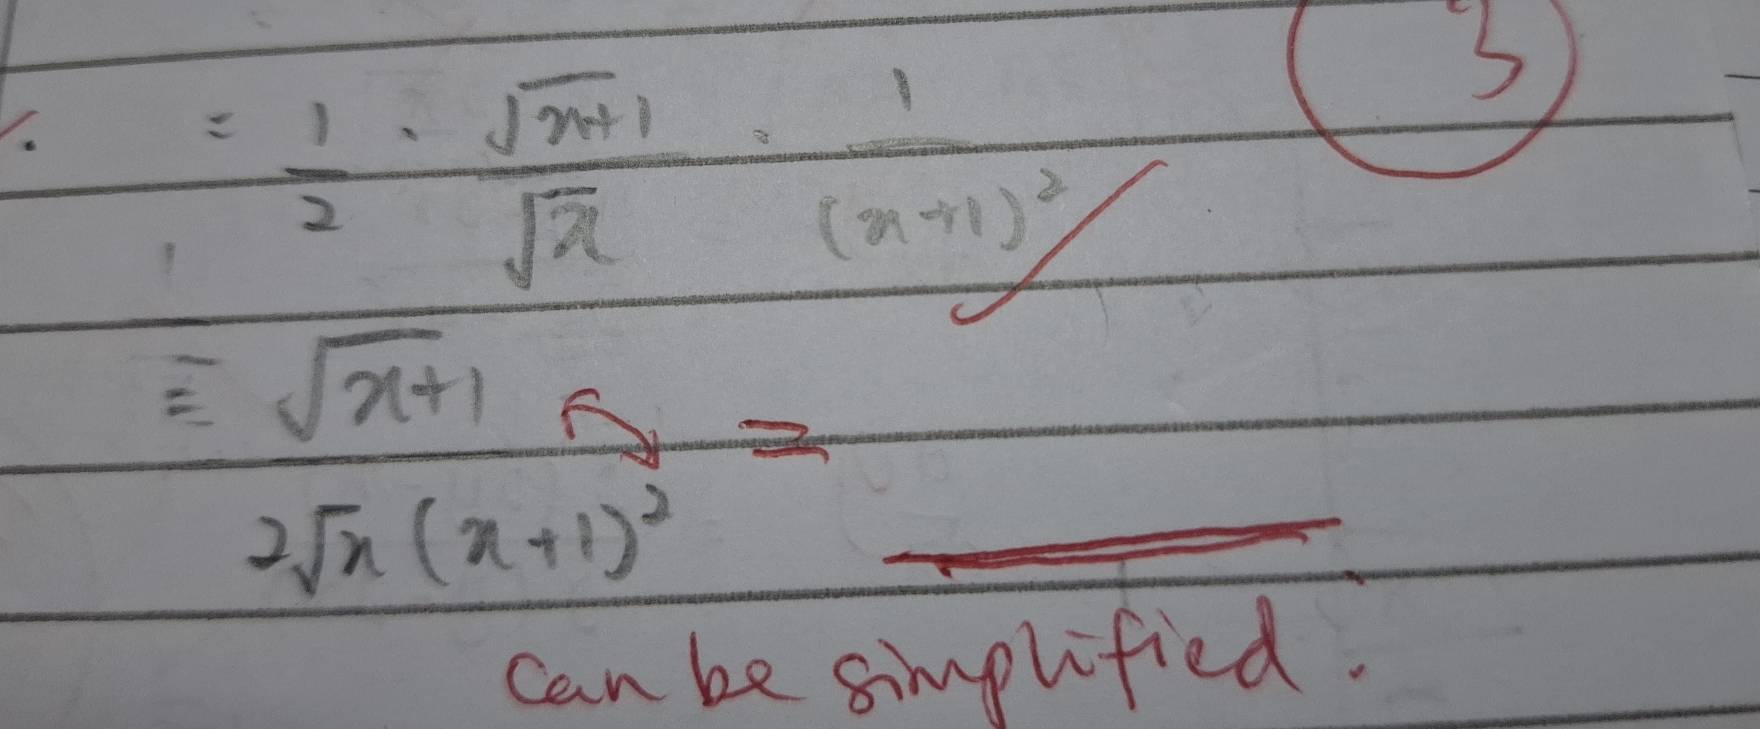 3
= 1/2 · √(x+1)/√x · 1/(x+1)²
= √(x+1)/2√x(x+1)² =
can be simplified.